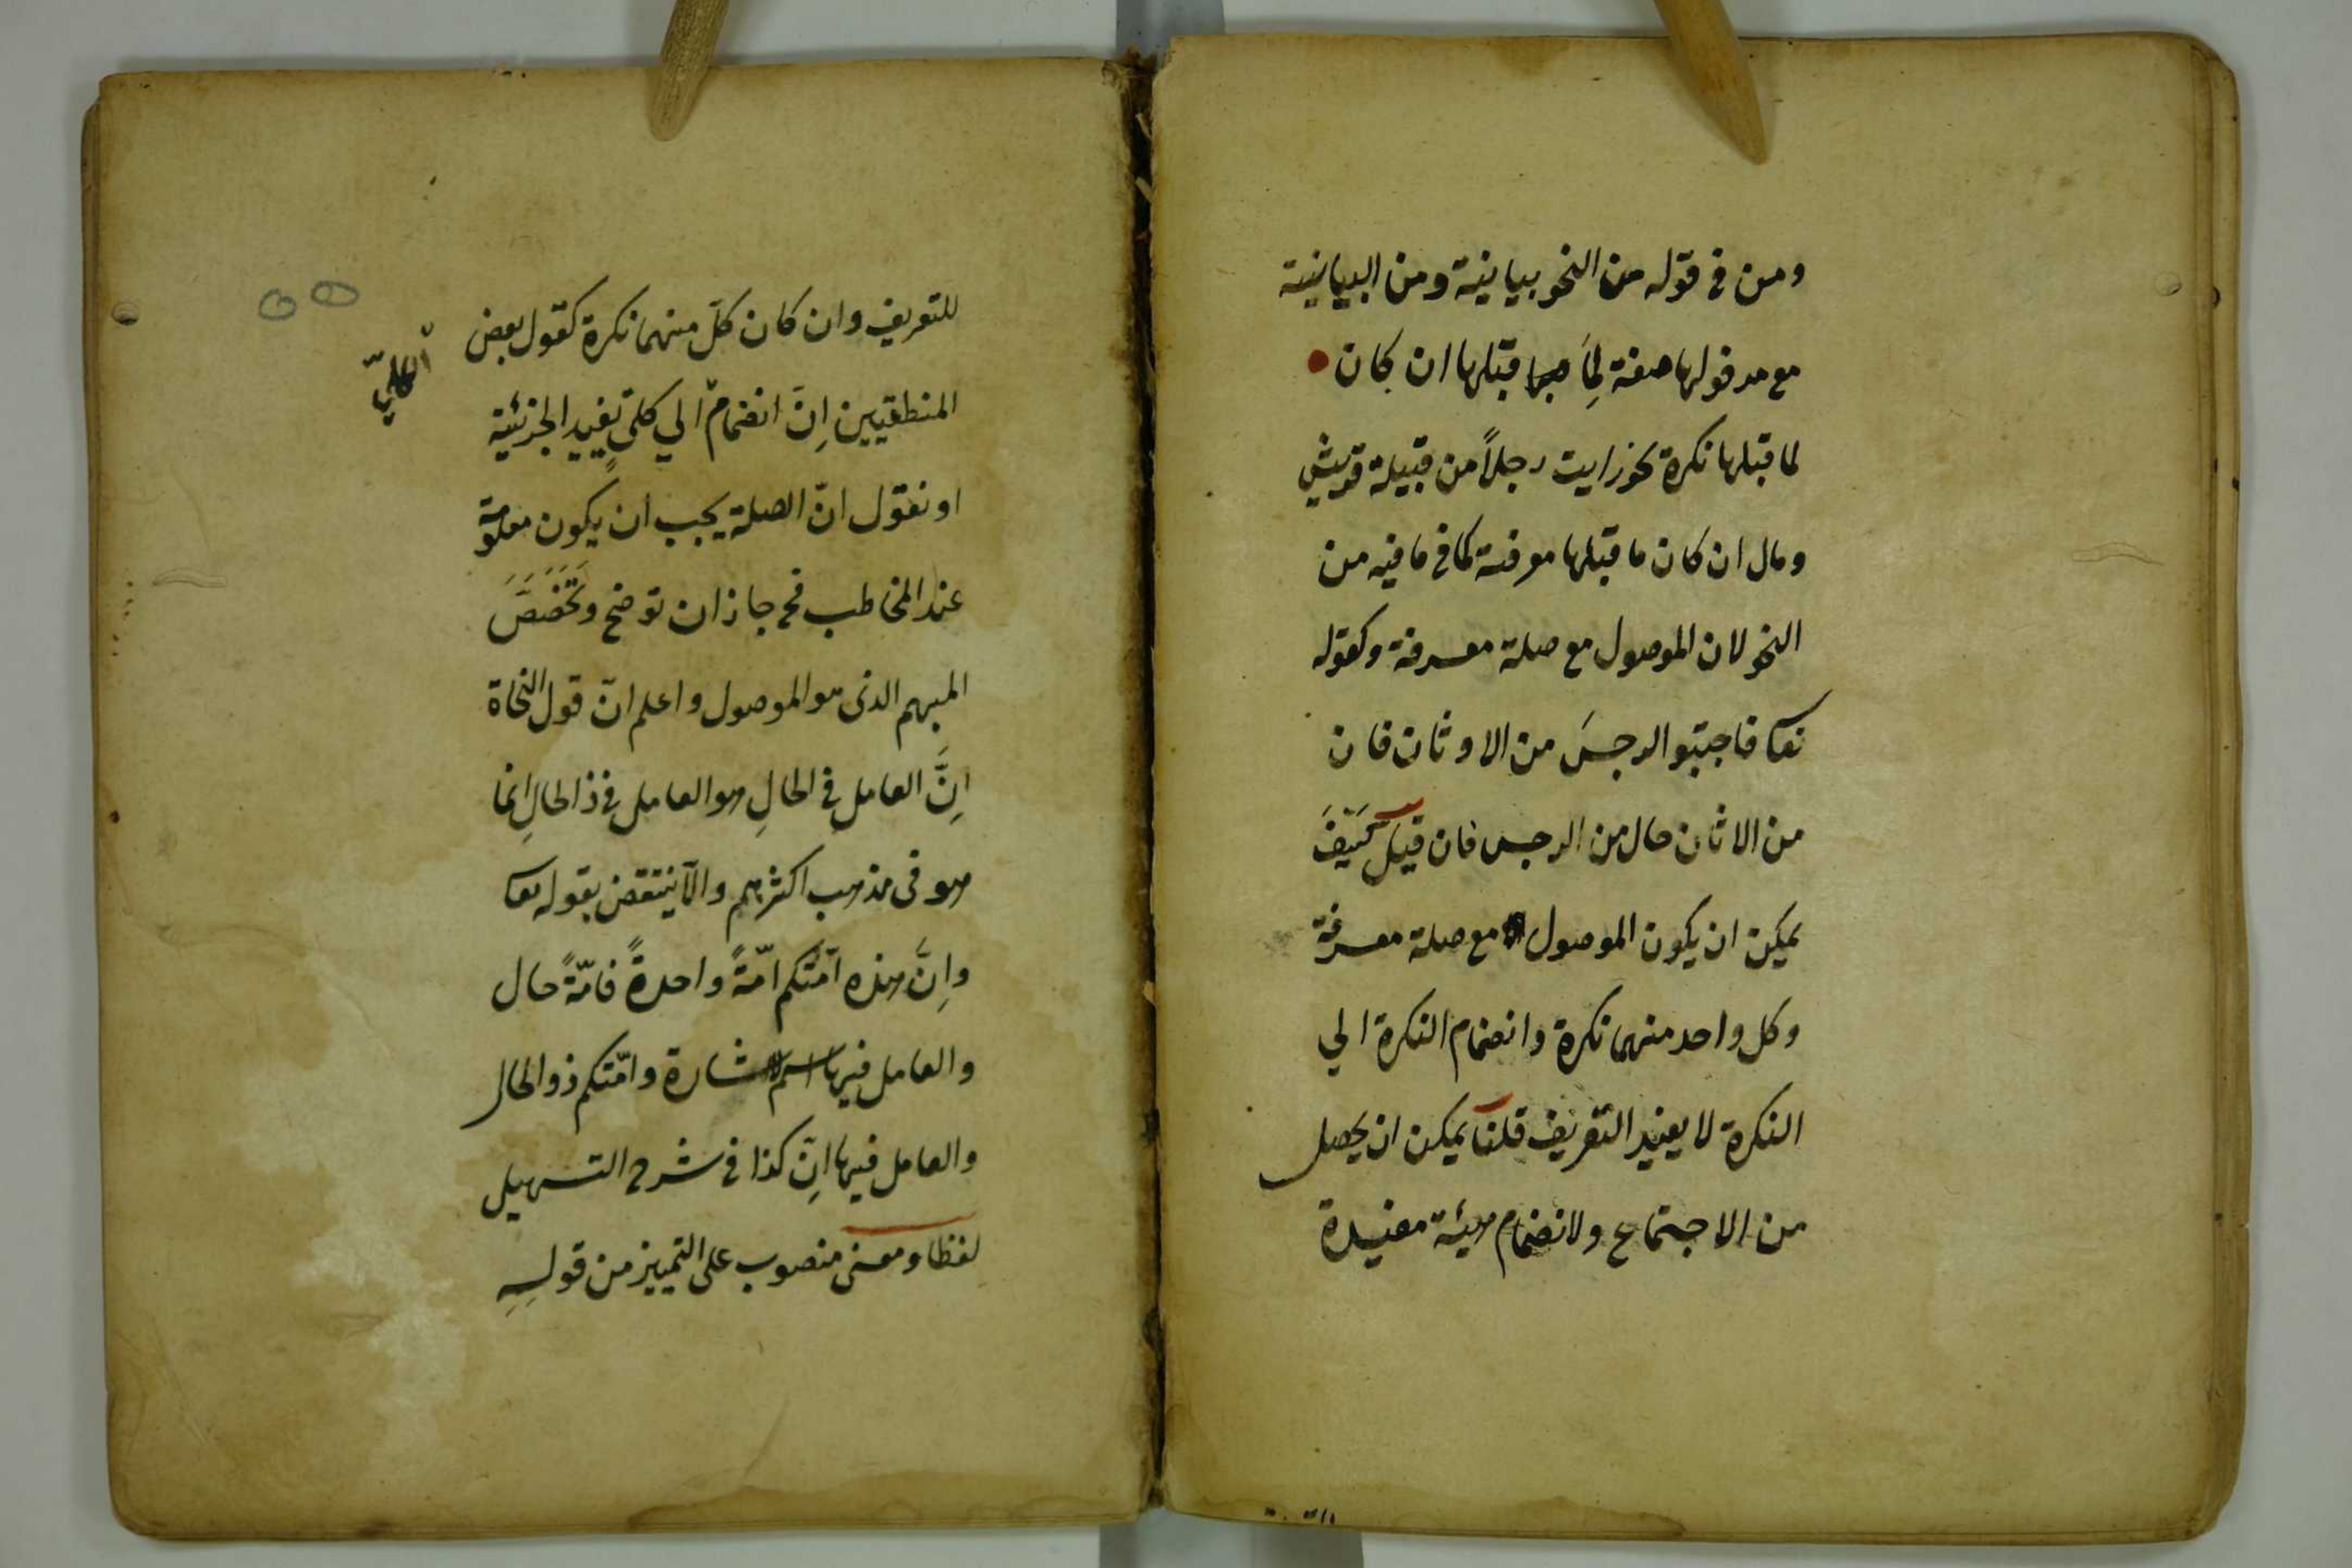 ومن فى قوله من النحو بيانية ومن البيانية
مع مدخولها صفة لِمَا قبلها ان كان
لما قبلها نكرة نحو رايت رجلاً من قبيلة قريش
وحال ان كان ما قبلها معرفة كما فى ما فيه من
النحو لان الموصول مع صلة معرفة وكقوله
تعا فاجتنبوا الرجسَ من الاوثان فان
من الاثان حال من الرجس فان قيل كَيْفَ
يمكن ان يكون الموصول مع صلة معرفة
وكل واحد منهما نكرة وانضمام النكرة الي
النكرة لا يفيد التعريف قلنا يمكن ان يحصل
من الاجتماع ولانضمام هيئة مفيدة
للتعريف وان كان كلّ منهما نكرة كقول بعض
المنطقيين اِنَّ انضمام الي كلىٍّ يفيد الجزئية
او نقول انّ الصلة يجب ان يكون معلومة
عند المخاطب فح جاز ان توضح وتَخَصَّصَ
المبهم الذى هو الموصول واعلم انّ قول النحاة
اِنَّ العامل فى الحالِ هو العامل فى ذالحالِ انما
هو فى مذهب اكثرهم والّا ينتقض بقوله تعا
واِنَّ هذه امّتكم امّةً واحدةً فامّةً حال
والعامل فيها اسم الاشارة وامّتكم ذو الحال
والعامل فيها اِنّ كذا فى شرح التسهيل
لفظا ومعنى منصوب على التمييز من قولِهِ